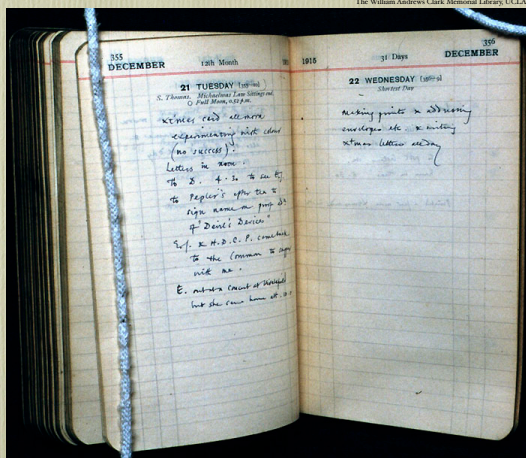 The William Andrews Clark Memorial Library, UCLA
355
DECEMBER 12th Month
21 TUESDAY
S. Thomas. Michaelmas Law Sittings end.
Full Moon, 0.52 p.m.
xtmas card all morn
experimenting with colour
(no success).
Letters in noon.
To D. 4.30 to see
to Pepler's after tea to
sign name on
of "Devil's Devices"
& H.D.C.P. came back
to the Common to
with me.
E. out at a concert at
but she came home at
1915 31 Days 356
DECEMBER
22 WEDNESDAY
Shortest Day
making prints & addressing
envelopes etc. & writing
xtmas letters all day